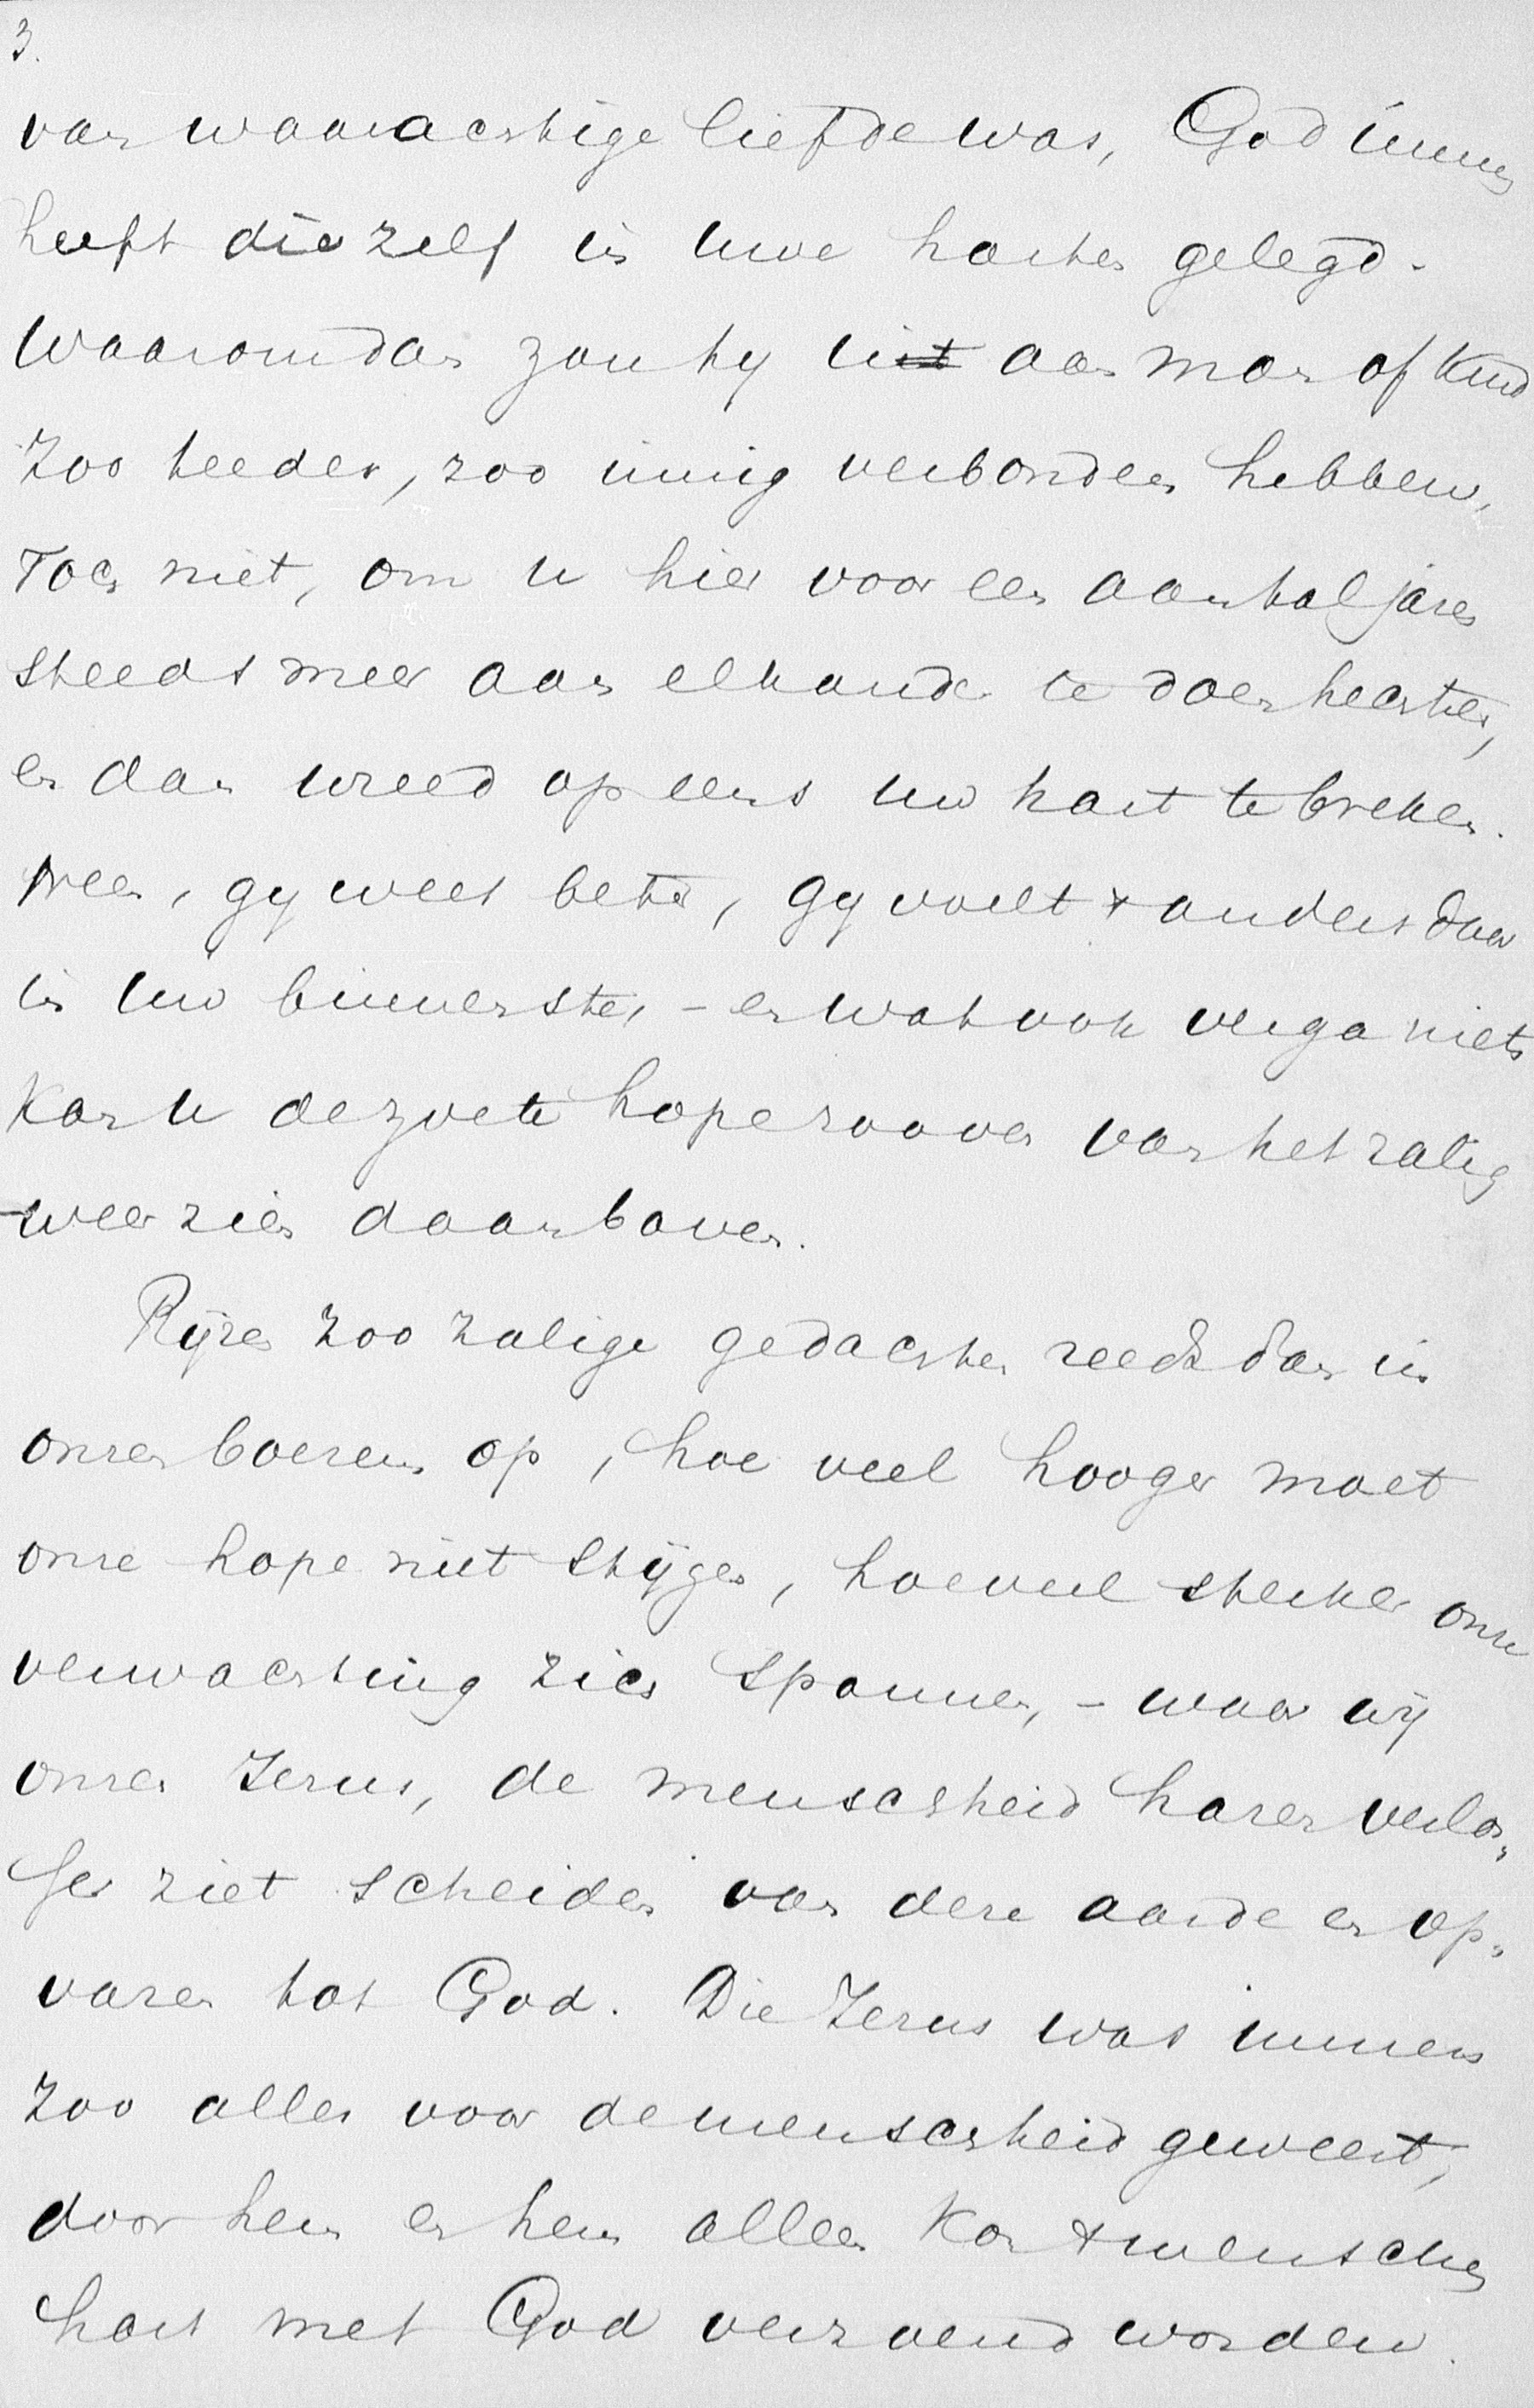 3.
van waarachtige liefde was, God immers
heeft die zelf in uwe harten gelegd.
Waarom dan zou hy u aan man of kind
zoo teeder, zoo innig verbonden hebben,
Toch niet, om u hier voor een aantal jaren
steeds meer aan elkander te doen hechten,
en dan wreed op eens uw hart te breken.
Neen, gy weet beter, gy voelt + anders daar
in uw binnenste, - en wat ook verga niets
kan u de zoete hope rooven van het zalig
weerzien daarboven.
Ryzen zoo zalige gedachten reeds dan in
onzen boezem op, hoe veel hooger moet
onze hope niet stijgen, hoeveel sterker onze
verwachting zich spannen, - waar wij
onzen Jezus, de menschheid haren verlos„
ser ziet scheiden van deze aarde en op„
varen tot God. Die Jezus was immers
zoo alles voor de menschheid geweest,
door hem en hem alleen kon + menschen
hart met God verzoend worden.